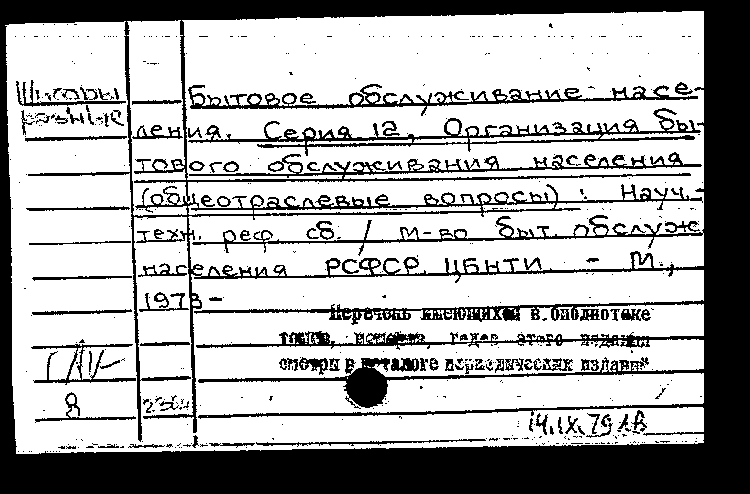 Шифры
разные
Бытовое обслуживание насе-
ления. Серия 12, Организация бы-
тового обслуживания населения
(общеотраслевые вопросы) : Науч.-
техн. реф. сб. / М-во быт. обслуж.
населения РСФСР. ЦБНТИ. - М.,
1973-
Перечень имеющихся в библиотеке
томов, номеров, годов этого издания
смотри в каталоге периодических изданий"
8
14.IX.79 ЛВ